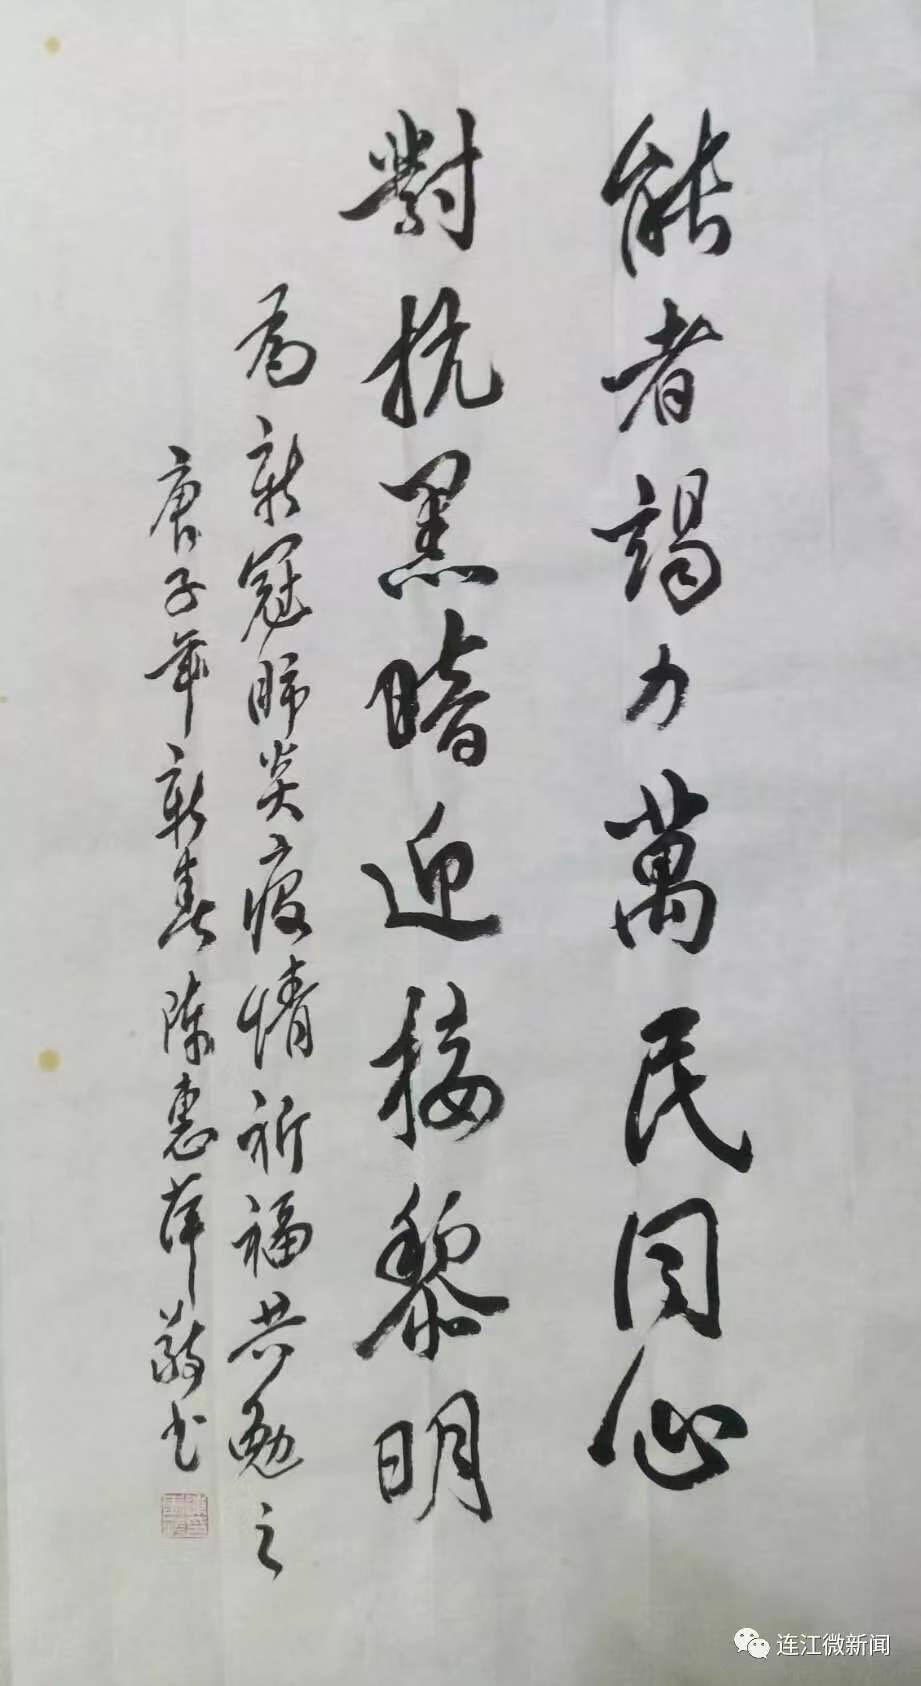 能者竭力萬民同心
對抗黑暗迎接黎明
為新冠肺炎疫情祈福共勉之
庚子年新春陈惠萍敬书
连江微新闻